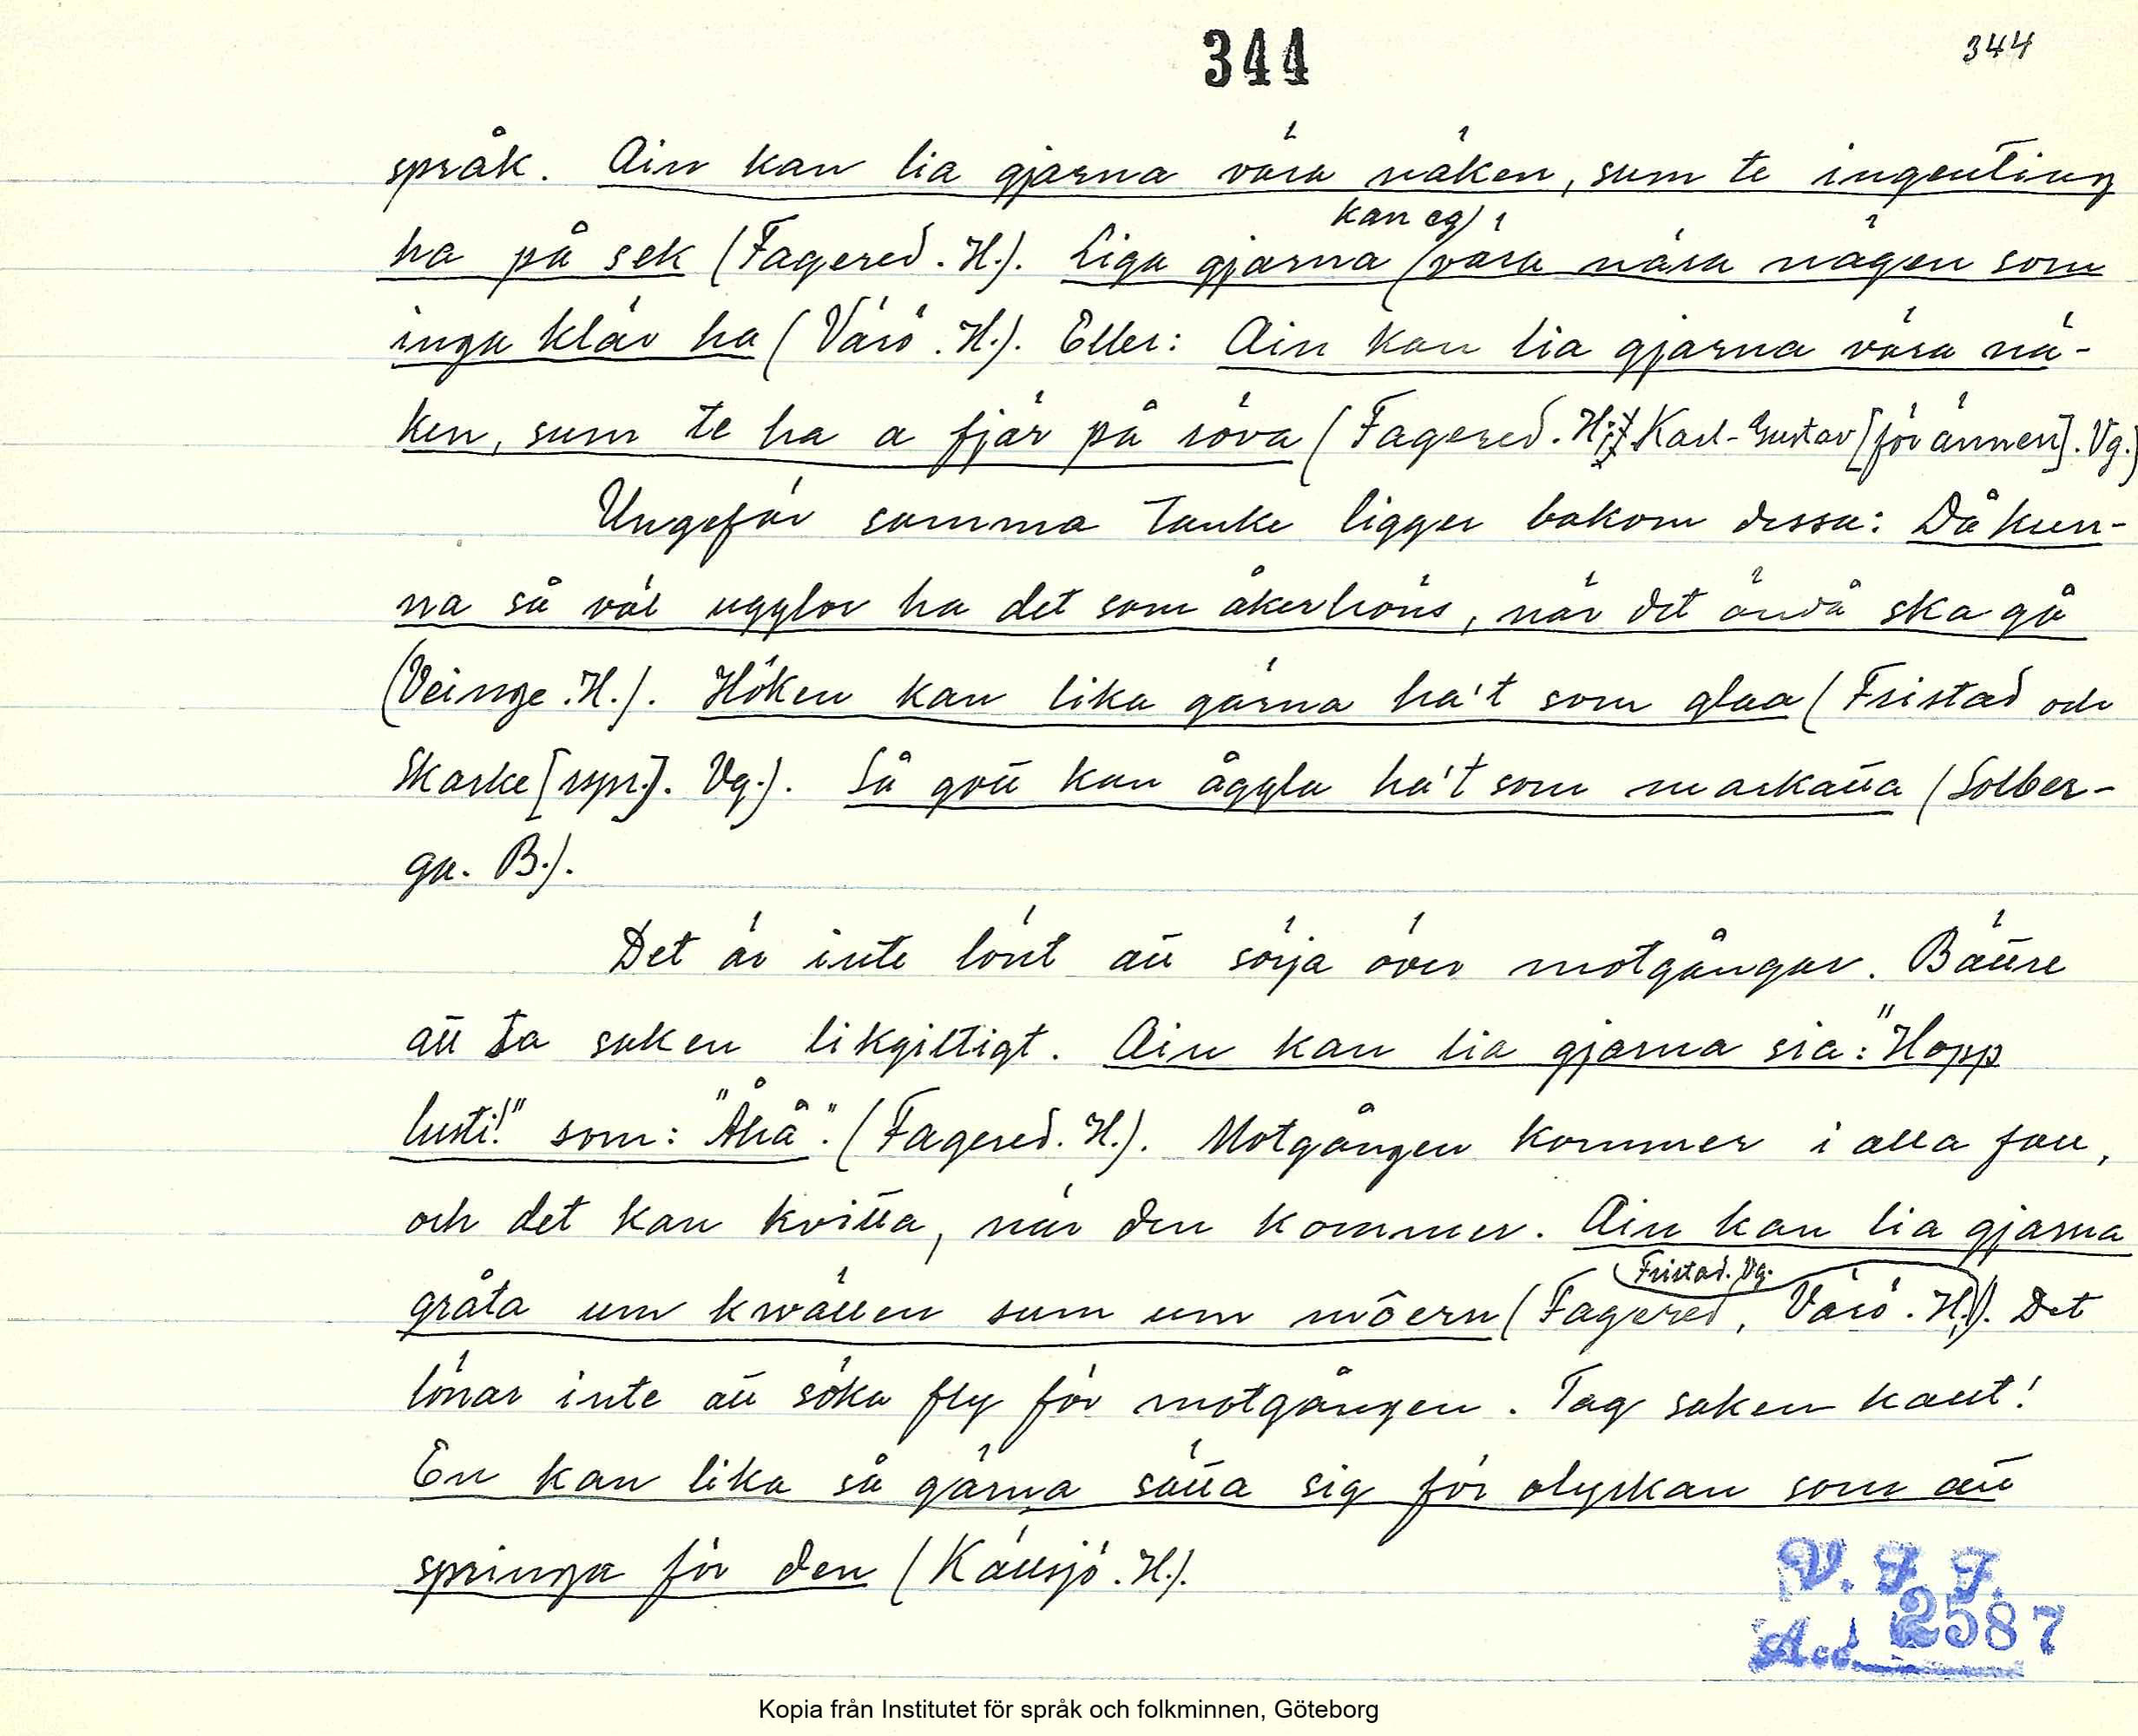 344
344
språk. Ain kan lia gjarna vära näken, sum te ingenting
kan eg
ha på sek (Fagered. H.). Liga gjarna vära nära nägen som
inga klär ha (Värö. H.). Eller: Ain kan lia gjarna vära nä-
ken, sum te ha a fjär på röva (Fagered. H.; Karl-Gustav [för ämnen]. Vg.)
Ungefär samma tanke ligger bakom dessa: Då kun-
na så väl ugglor ha det som åkerhöns, när det ändå ska gå
(Veinge. H.). Höken kan lika gärna ha't som glaa (Fristad och
Skarke [rspr.]. Vg.). Så gott kan åggla ha't som markatta (Solber-
ga. B.).
Det är inte lönt att sörja över motgångar. Bättre
att ta saken likgiltigt. Ain kan lia gjarna sia: "Hopp
lusti!" som: "Åhå". (Fagered. H.). Motgången kommer i alla fall,
och det kan kvitta, när den kommer. Ain kan lia gjarna
Fristad. Vg.
gråta um kwällen sum um môern (Fagered, Värö. H.). Det
lönar inte att söka fly för motgången. Tag saken kallt!
En kan lika så gärna sätta sig för olyckan som att
springa för den (Källsjö. H.).
V. F. F.
Acc. 2587
Kopia från Institutet för språk och folkminnen, Göteborg